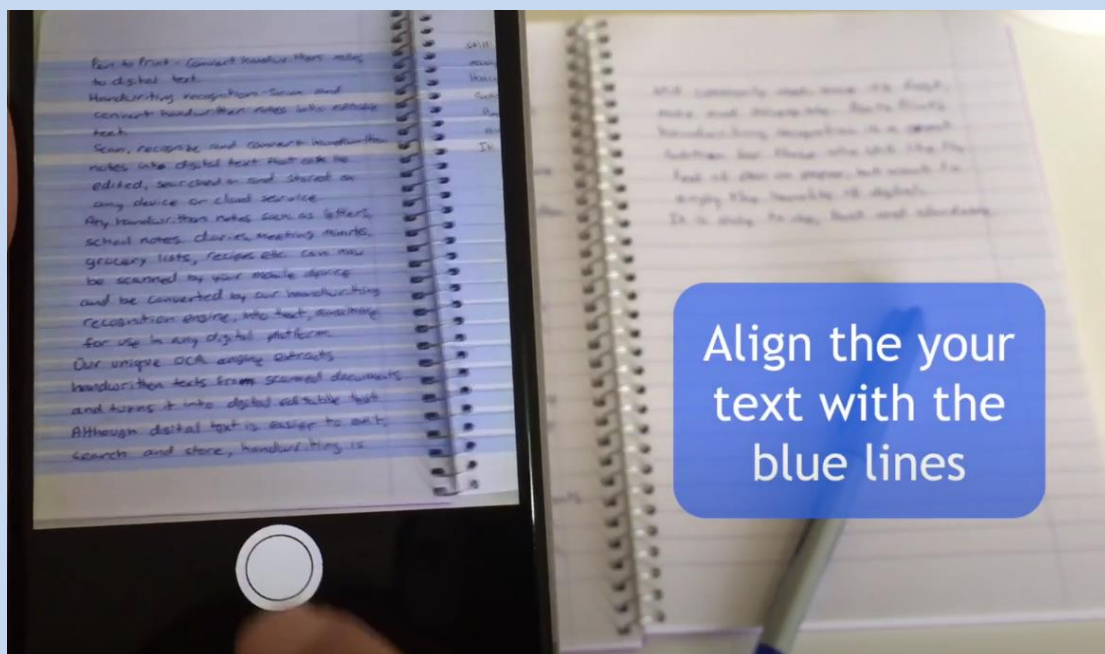 Pen to Print - Convert handwritten notes
to digital text.
Handwriting recognition - Scan and
convert handwritten notes into editable
text.
Scan, recognize and convert handwritten
notes into digital text that can be
edited, searched in and stored on
any device or cloud service.
Any handwritten notes such as letters,
school notes, diaries, meeting minutes,
grocery lists, recipes etc. can now
be scanned by your mobile device
and be converted by our handwriting
recognition engine, into text, available
for use in any digital platform.
Our unique OCR engine extracts
handwritten texts from scanned documents
and turns it into digital editable text
Although digital text is easier to edit,
search and store, handwriting is
still
It
still commonly used since it is
more and
handwriting recognition is a great
solution for those who still like the
feel of pen on paper, but want to
enjoy the benefits of digital.
It is easy to use, fast and
Align the your
text with the
blue lines